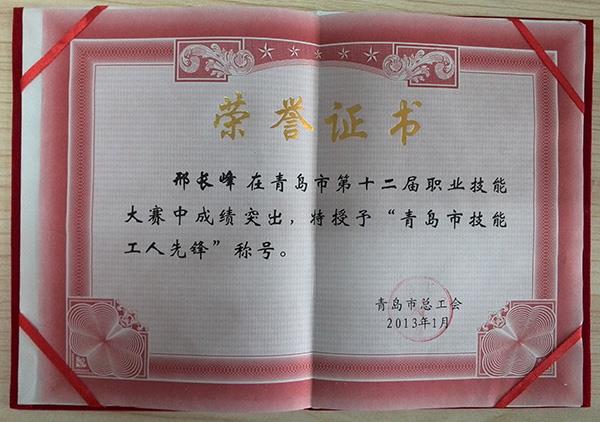 荣誉证书
邢长峰在青岛市第十二届职业技能
大赛中成绩突出，特授予“青岛市技能
工人先锋”称号。
青岛市总工会
2013年1月